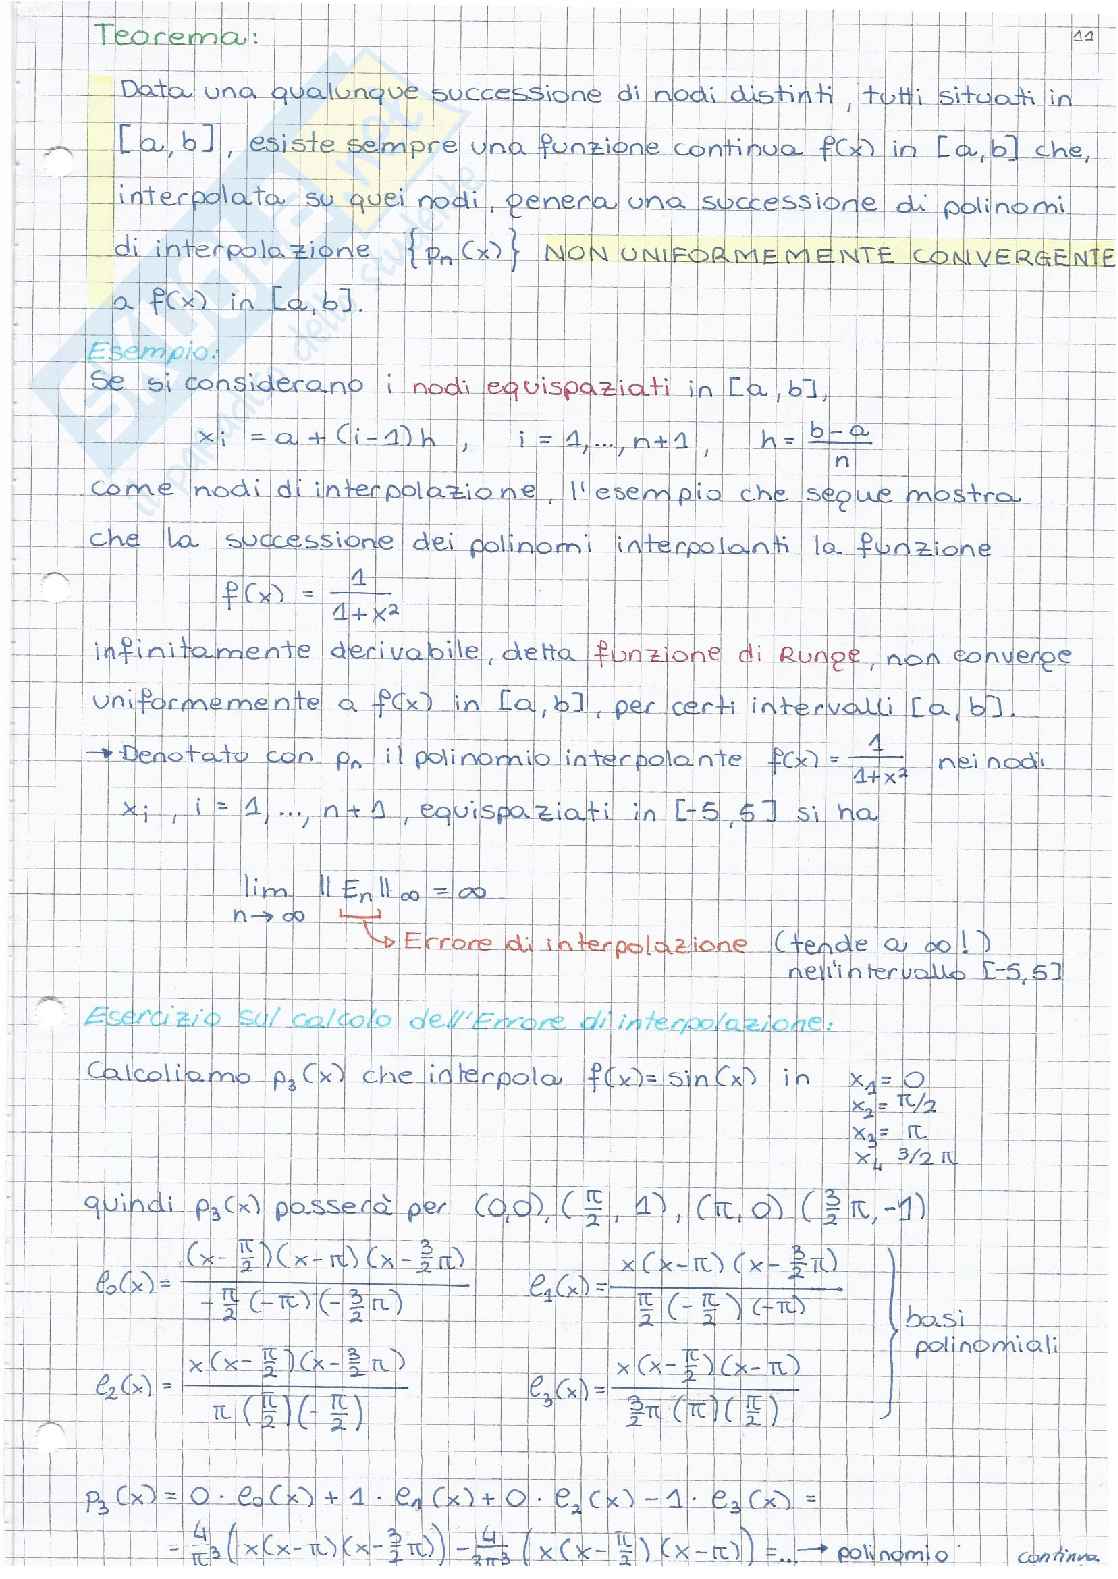 11
Teorema:
Data una qualunque successione di nodi distinti, tutti situati in
[a,b], esiste sempre una funzione continua f(x) in [a,b] che,
interpolata su quei nodi, genera una successione di polinomi
di interpolazione {pₙ(x)} NON UNIFORMEMENTE CONVERGENTE
a f(x) in [a,b].
Esempio:
Se si considerano i nodi equispaziati in [a,b],
xᵢ = a + (i-1)h , i = 1,...,n+1, h = (b-a)/n
come nodi di interpolazione, l'esempio che segue mostra
che la successione dei polinomi interpolanti la funzione
f(x) = 1/(1+x²)
infinitamente derivabile, detta funzione di Runge, non converge
uniformemente a f(x) in [a,b], per certi intervalli [a,b].
→ Denotato con pₙ il polinomio interpolante f(x) = 1/(1+x²) nei nodi
xᵢ, i = 1,...,n+1, equispaziati in [-5,5] si ha
lim n→∞ ||Eₙ||∞ = ∞
↳ Errore di interpolazione (tende a ∞!)
nell'intervallo [-5,5]
Esercizio sul calcolo dell'Errore di interpolazione:
Calcoliamo p₃(x) che interpola f(x)=sin(x) in x₁= 0
x₂= π/2
x₃= π
x₄ 3/2 π
quindi p₃(x) passerà per (0,0), (π/2, 1), (π,0) (3/2 π,-1)
ℓ₀(x) = (x-π/2)(x-π)(x-3/2 π) / -π/2 (-π)(-3/2 π) ℓ₁(x) = x(x-π)(x-3/2 π) / π/2 (-π/2)(-π)
basi
polinomiali
ℓ₂(x) = x(x-π/2)(x-3/2 π) / π(π/2)(-π/2) ℓ₃(x) = x(x-π/2)(x-π) / 3/2 π (π)(π/2)
p₃(x) = 0 · ℓ₀(x) + 1 · ℓ₁(x) + 0 · ℓ₂(x) - 1 · ℓ₃(x) =
- 4/π³ (x(x-π)(x-3/2 π)) - 4/3π³ (x(x-π/2)(x-π)) = ... → polinomio continua